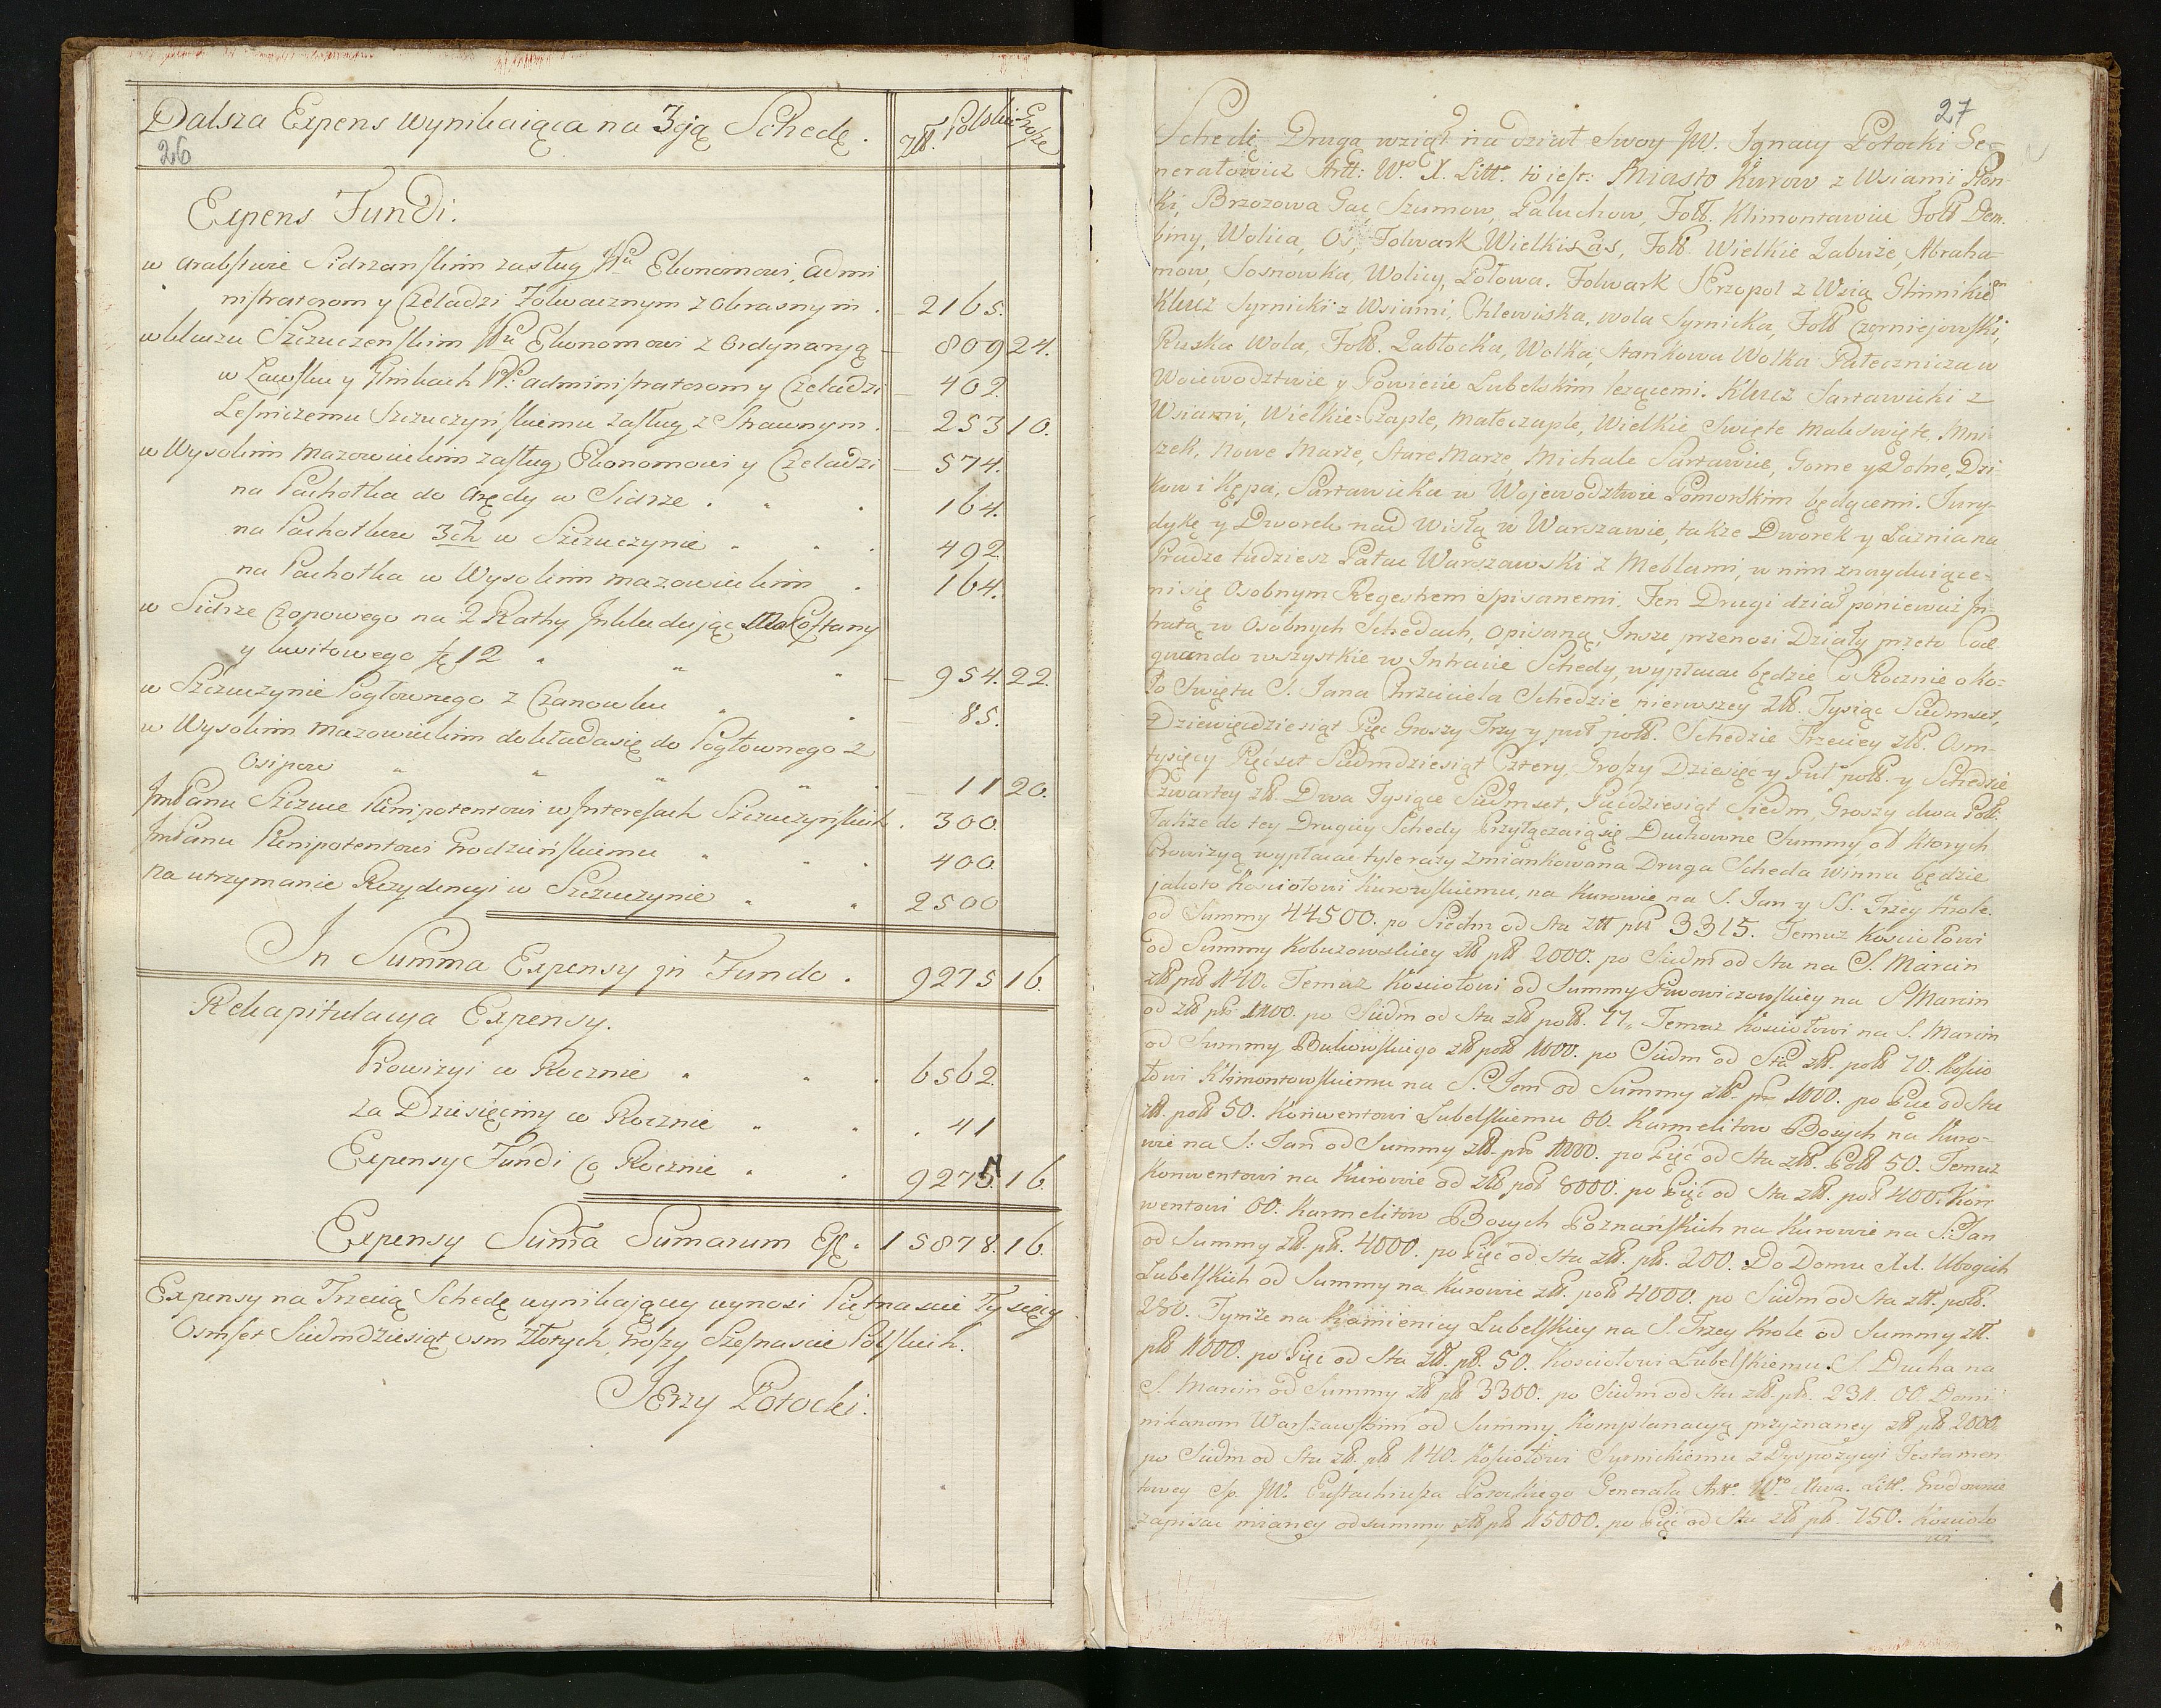 Dalsza Expens wynikaiąca na 3cią Schedę.
Złł. Polskie Grosze
26
Expens Fundi.
w Arabstwie Sidrzanskim zasług JPu Ekonomowi, admi
nistratorom y Czeladzi Folwarcznym z Okrasnym . 2165.
w kluczu Szczuczenskim JPu Ekonomowi z Ordynaryą 809 24.
w Ławsku y Glinkach administratorom y Czeladzi 402.
Lesniczemu Szczuczyńskiemu zasług z Strawnym . 253 10.
w Wysokim Mazowieckim zasług Ekonomowi y Czeladzi 574.
na Pachołka do Arędy w Sidrze . 164.
na Pachołkow 3ch w Szczuczynie 492.
na Pachołka w Wysokim Mazowieckim 164.
w Sidrze Czopowego na 2 Rathy Inkludując
y kwitowego 12 954. 22.
w Szczuczynie Pogłownego z Czanowku 85.
w Wysokim Mazowieckim dokłada się do Pogłownego z
Osipow 11 20.
JmPanu Szczuce Plenipotentowi w Interessach Szczuczyńskich . 300.
JmPanu Plenipotentowi Grodzieńskiemu 400.
Na utrzymanie Rezydencyi w Szczuczynie 2500
In Summa Expensy in Fundo . 9275 16.
Rekapitulacya Expensy.
Prowizyi co Rocznie 6562.
za Dziesięciny co Rocznie . 41
Expensy Fundi co Rocznie 9275. 16.
Expensy Suma Sumarum Est 15878. 16.
Expensy na Trzecią Schedę wynikający wynosi Piętnascie Tysięcy
Osmset Siedmdziesiąt osm złotych, Groszy Szesnascie Polskich.
Jerzy Potocki.
27
Schedę Drugą wziął na dział Swoy JW. Ignacy Potocki Ge-
nerałowicz Artt: W. X. Litt. to iest: Miasto Kurow z Wsiami Płon-
ki, Brzozowa Gać, Szumow, Paluchow, Folw. Klimontowice Folw Dem-
biny, Wolica, Os, Folwark Wielki Las, Folw Wielkie Zabuże, Abraha-
mow, Sosnowka, Wolicy, Połowa. Folwark Przypol z Wsią Glinnikiem
Klucz Syrnicki z Wsiami, Chlewiska, wola Syrnicka, Folw Czerniejowski,
Ruska Wola, Folw. Zabłocka, Wolka, Stankowa Wolka Pałecznicza w
Woiewodztwie y Powiecie Lubelskim lezącemi. Klucz Sartawicki z
Wsiami, Wielkie Czaple, Małe czaple, Wielkie Swięte Małe swięte, Mni-
szek, Nowe Marze, Stare Marze, Michale Sartawice, Gorne y Dolne, Dzi-
kow i Kępa, Sartawicka w Wojewodztwie Pomorskim będącemi. Jury-
dykę y Dworek nad Wisłą w Warszawie, także Dworek y Łaźnia na
Pradze tudziesz Pałac Warszawski z Meblami, w nim znayduiące-
mi się Osobnym Regestrem spisanemi. Ten Drugi dział ponieważ In-
tratą w Osobnych Schedach, opisaną, Insze przenosi Działy przeto Coe-
quando wszystkie w Intracie Schedy, wypłacac będzie Co Rocznie oko-
ło Swięta S. Jana Chrzciciela Schedzie pierwszey Złł. Tysiąc Siedmset,
Dziewięcdziesiąt Pięc Groszy Trzy y puł polł. Schedzie Trzeciey złł. Osm-
tysięcy Pięćset Siedmdziesiąt Cztery, Groszy Dziesięc y Puł polł. y Schedzie
Czwartey złł. Dwa Tysiące Siedmset, Pięcdziesiąt Siedm, Groszy dwa Poll.
Także do tey Drugiey Schedy Przyłączaią się Duchowne Summy od ktorych
Prowizyą wypłacac tyle razy zmiankowana Druga Scheda winna będzie
jakoto Kosciołowi Kurowskiemu, na Kurowie na S. Jan y SS. Trzey Krole
od Summy 44500. po Siedm od Sta złł płł 3315. Temuz Kosciołowi
od Summy Kobuzowskiey złł płł 2000. po Siedm od Sta na S. Marcin
złł płł 140. Temuz Kosciołowi od Summy na S Marcin
od złł płł 1100. po Siedm od Sta złł polł. 77. Temuz Kosciołowi na S. Marcin
od Summy Bukowskiego złł polł 1000. po Siedm od Sta złł. polł 70. Koscio
łowi Klimontowskiemu na S. Jan od Summy złł. płł 1000. po Pięc od Sta
złł. polł 50. Konwentowi Lubelskiemu OO. Karmelitow Bosych na Kuro-
wie na S. Jan od Summy złł. płł 1000. po Pięć od Sta złł. Polł 50. Temuz
Konwentowi na Kurowie od złł polł 8000. po Pięć od Sta złł. polł 400. Kon
wentowi OO. Karmelitow Bosych Poznańskich na Kurowie na S. Jan
od Summy złł. płł. 4000. po Pięć od Sta złł. płł. 200. Do Domu Ubogich
Lubelskich od Summy na Kurowie złł. polł 4000. po Siedm od Sta złł. polł.
280. Tymże na Kamienicy Lubelskiey na S. Trzey Krole od Summy złł.
płł 1000. po Pięc od Sta złł. płł. 50. Kosciołowi Lubelskiemu S. Ducha na
S. Marcin od Summy złł płł 3300. po Siedm od Sta złł. płł. 231. OO. Domi-
nikanom Warszawskim od Summy, Komplanacyą przyznaney złł płł 2000
po Siedm od Sta złł. płł 140. Kosciołowi Syrnickiemu z Dyspozycyi Testamen
towey Sp. JW. Eustachiusza Potockiego Generała Artt. W. Litt. Grodownie
zapisac mianey od summy złł płł 15000. po Pięć od Sta złł płł. 750. Koscioło
wi